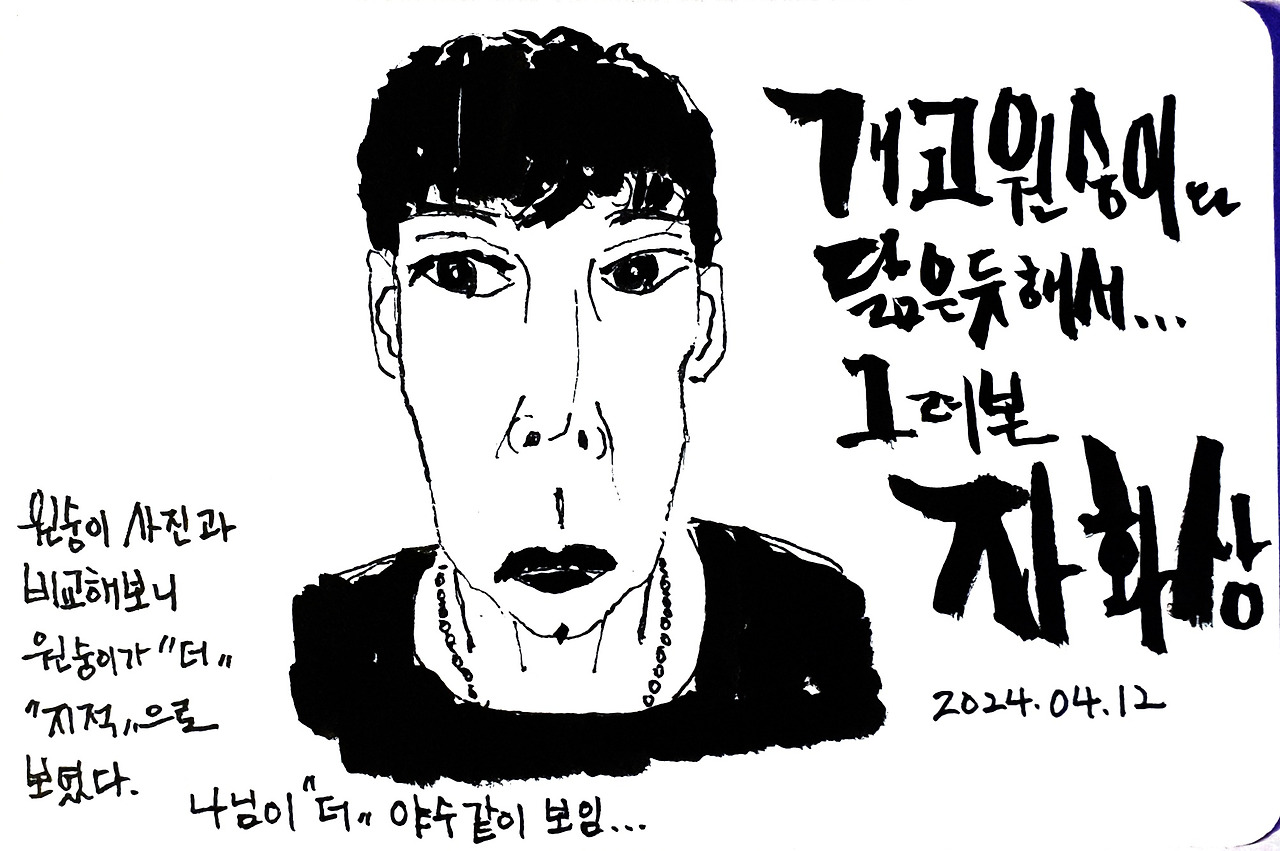 개코원숭이랑
닮은듯해서...
그려본
자화상
2024.04.12
원숭이 사진과
비교해보니
원숭이가 "더"
"지적"으로
보였다.
나님이 "더" 야수같이 보임...